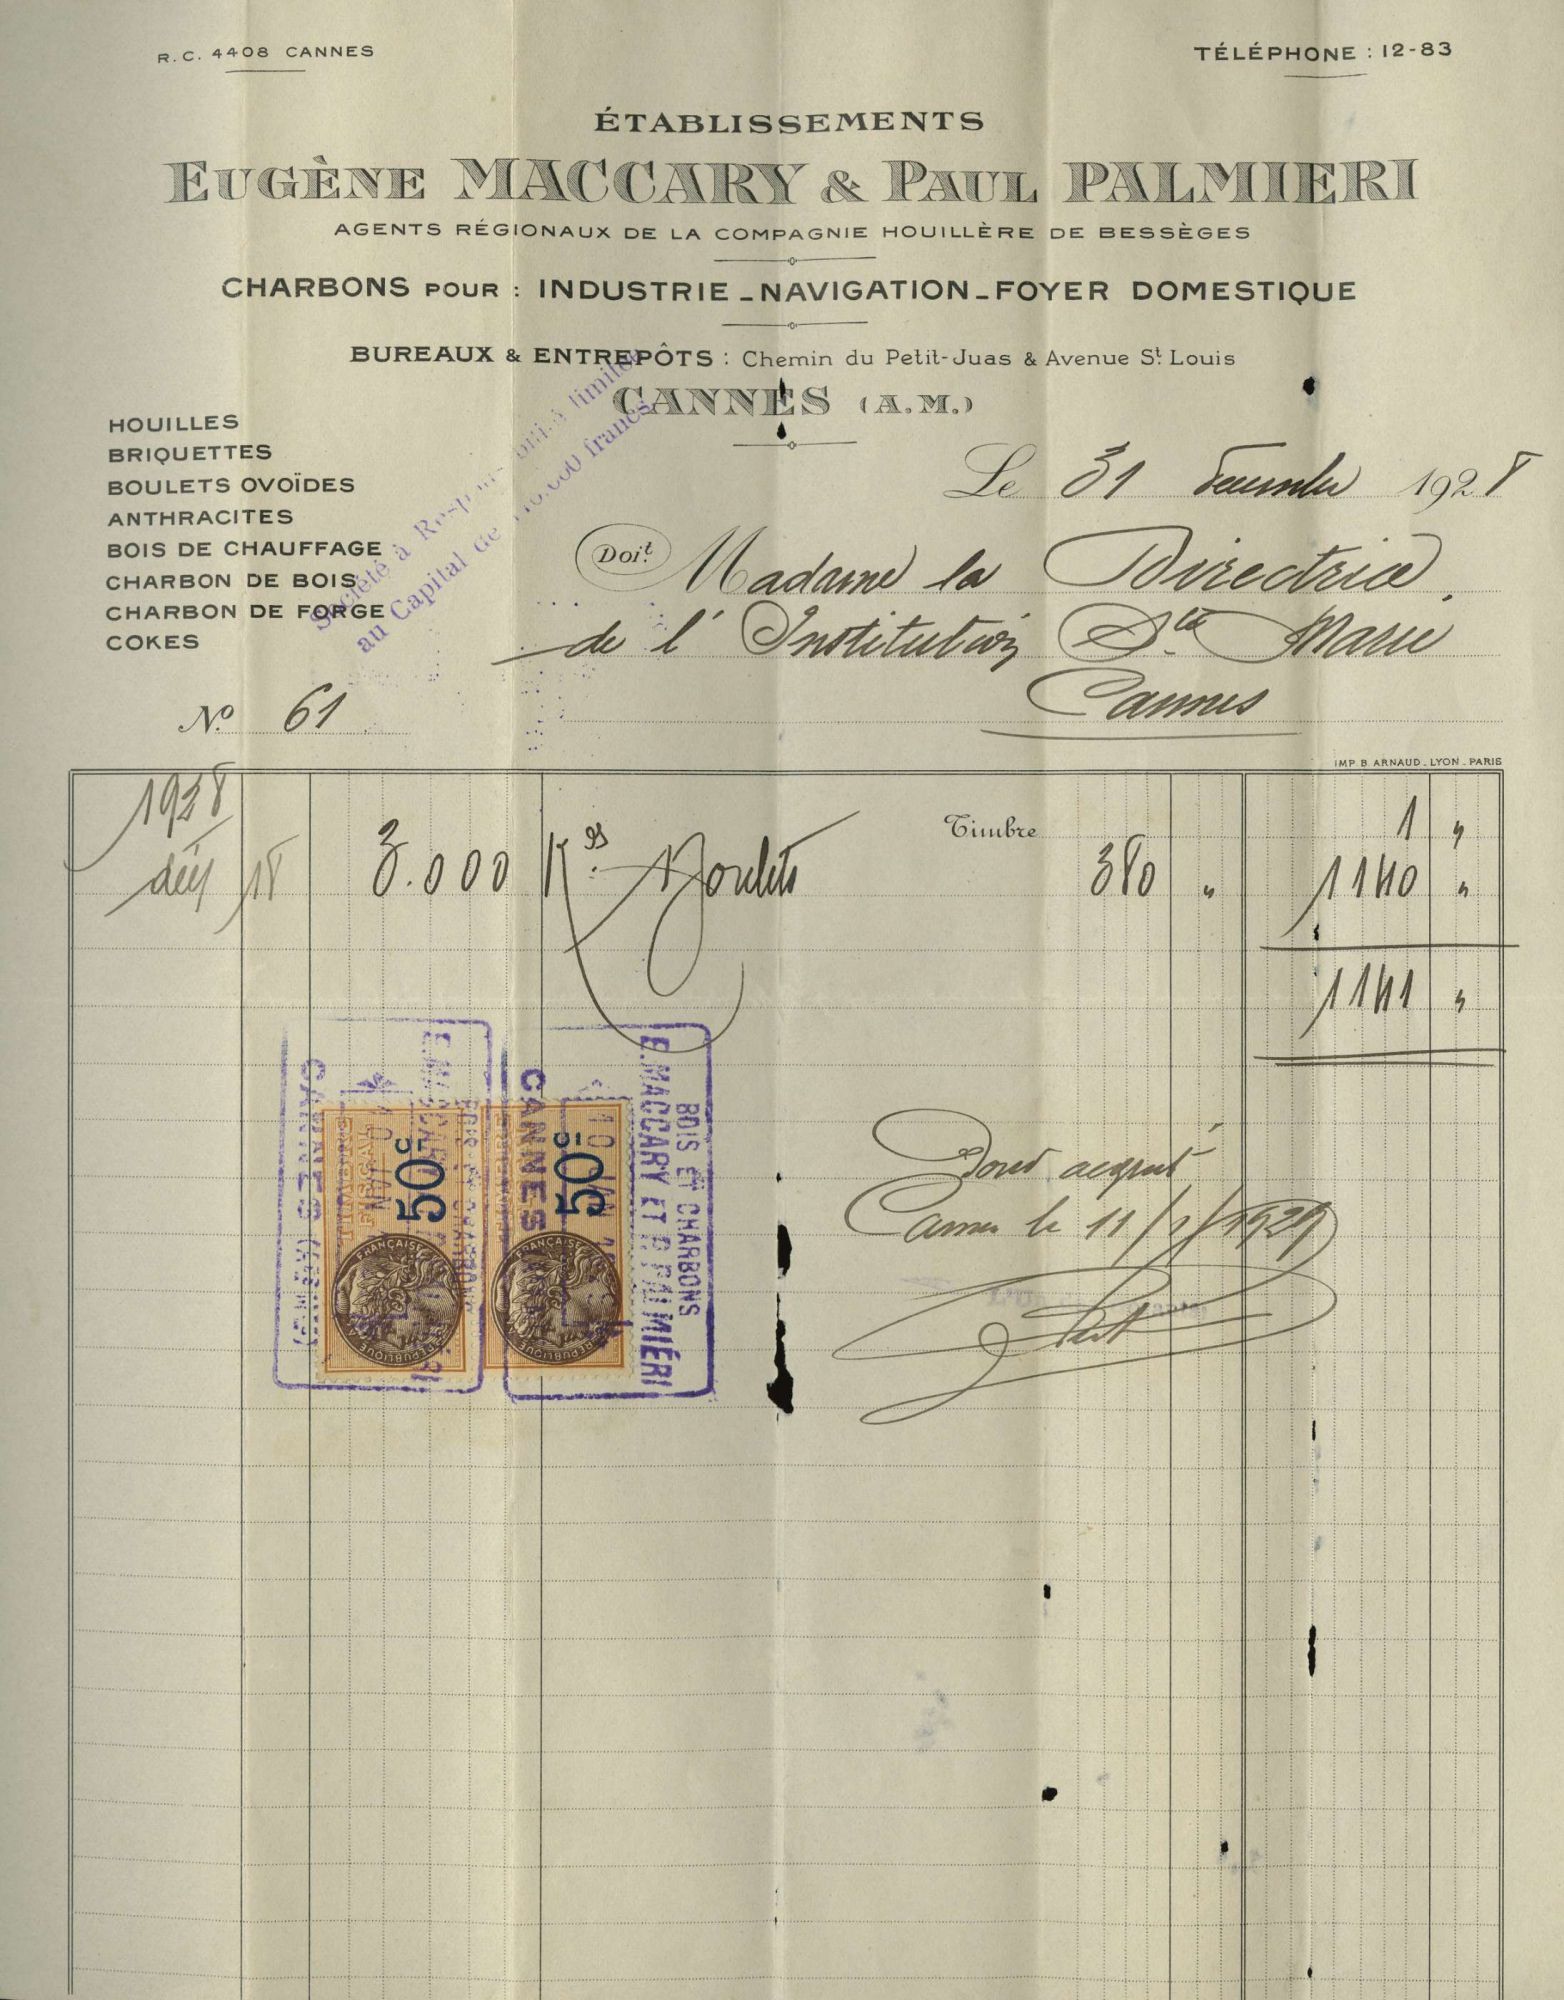 R.C. 4408 CANNES
TÉLÉPHONE : 12-83
ÉTABLISSEMENTS
EUGÈNE MACCARY & PAUL PALMIERI
AGENTS RÉGIONAUX DE LA COMPAGNIE HOUILLÈRE DE BESSÈGES
CHARBONS POUR : INDUSTRIE - NAVIGATION - FOYER DOMESTIQUE
BUREAUX & ENTREPÔTS : Chemin du Petit-Juas & Avenue St Louis
CANNES (A.M.)
Société à Responsabilité limitée
au Capital de francs
HOUILLES
BRIQUETTES
BOULETS OVOÏDES
ANTHRACITES
BOIS DE CHAUFFAGE
CHARBON DE BOIS
CHARBON DE FORGE
COKES
Le 31 Décembre 1928
Doit Madame la Directrice
de l'Institution Ste Marie
Cannes
No 61
IMP. B. ARNAUD - LYON - PARIS
1928
Timbre 1 "
déc 18 3.000 Kgs Boulets 380 " 1140 "
1141 "
BOIS ET CHARBONS
E. MACCARY ET P. PALMIÉRI
CANNES
TIMBRE
FISCAL
50c
50c
RÉPUBLIQUE FRANÇAISE
RÉPUBLIQUE FRANÇAISE
Pour acquit
Cannes le 11/1/1929